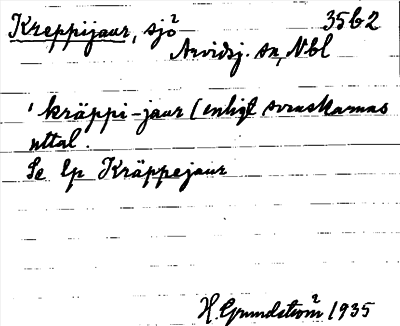 Kreppijaur, sjö 35b2
Arvidsj. sn, Nbl
'kräppi-jaur (enligt svenskarnas
uttal.
Se lp Kräppejaur
H. Grundström 1935